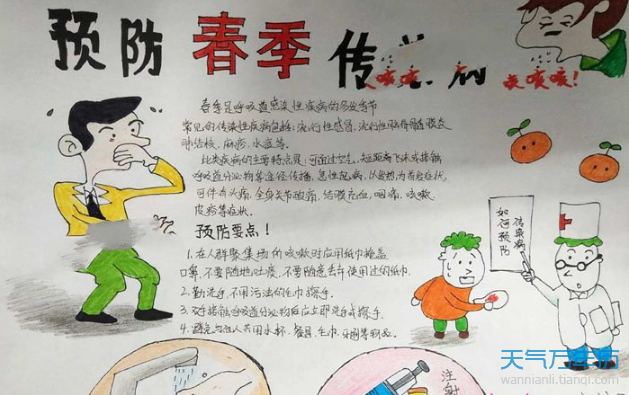 预防春季传 病
咳咳咳!
春季是呼吸道感染性疾病的多发季节
常见的传染性疾病包括:流行性感冒、流行性脑脊髓膜炎
肺结核、麻疹、水痘等。
此类疾病的主要特点是:可通过空气、短距离飞沫或接触
呼吸道分泌物等途径传播,急性起病,以发热为首发症状,
可伴有头痛,全身关节酸痛,结膜充血,咽痛,咳嗽、
皮疹等症状。
预防要点!
1.在人群聚集场 咳嗽时应用纸巾掩盖
口鼻,不要随地吐痰,不要随意丢弃使用过的纸巾
2.勤洗手,不用污浊的毛巾擦手.
3. 接触呼吸道分泌物后应立即洗手或擦手.
4.避免与他人共用水杯、餐具、毛巾、牙刷等物品.
如何预防
传染病
注射
天气万年历
wannianli.tianqi.com